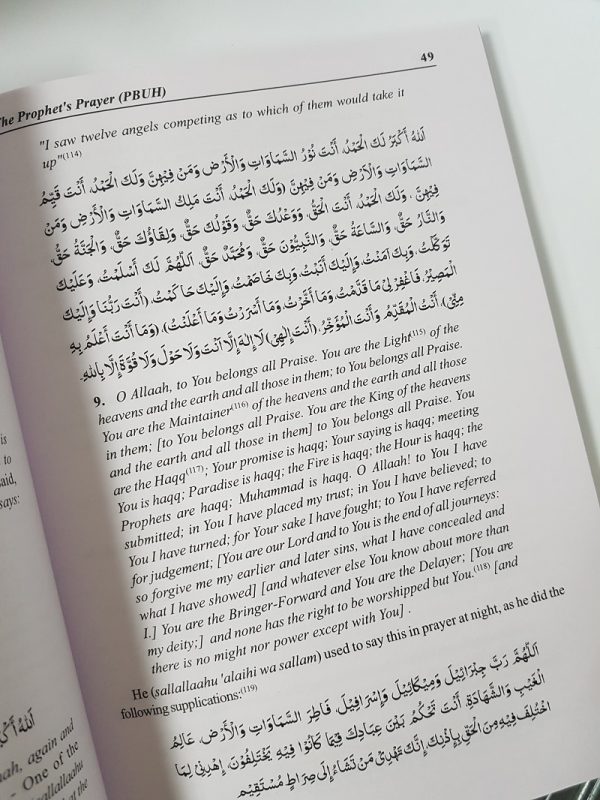 The Prophet's Prayer (PBUH)
49
"I saw twelve angels competing as to which of them would take it
up"(114)
اَللهُ أَكْبَرُ لَكَ الْحَمْدُ، أَنْتَ نُوْرُ السَّمَاوَاتِ وَالْأَرْضِ وَمَنْ فِيْهِنَّ وَلَكَ الْحَمْدُ، أَنْتَ قَيِّمُ
السَّمَاوَاتِ وَالْأَرْضِ وَمَنْ فِيْهِنَّ (وَلَكَ الْحَمْدُ، أَنْتَ مَلِكُ السَّمَاوَاتِ وَالْأَرْضِ وَمَنْ
فِيْهِنَّ، وَلَكَ الْحَمْدُ، أَنْتَ الْحَقُّ، وَوَعْدُكَ حَقٌّ، وَقَوْلُكَ حَقٌّ، وَلِقَاؤُكَ حَقٌّ، وَالْجَنَّةُ حَقٌّ،
وَالنَّارُ حَقٌّ، وَالسَّاعَةُ حَقٌّ، وَالنَّبِيُّوْنَ حَقٌّ، وَمُحَمَّدٌ حَقٌّ، اَللّٰهُمَّ لَكَ أَسْلَمْتُ، وَعَلَيْكَ
تَوَكَّلْتُ، وَبِكَ اٰمَنْتُ، وَإِلَيْكَ أَنَبْتُ، وَبِكَ خَاصَمْتُ، وَإِلَيْكَ حَاكَمْتُ، (أَنْتَ رَبُّنَا وَإِلَيْكَ
الْمَصِيْرُ، فَاغْفِرْلِيْ مَا قَدَّمْتُ، وَمَا أَخَّرْتُ، وَمَا أَسْرَرْتُ وَمَا أَعْلَنْتُ)، (وَمَا أَنْتَ أَعْلَمُ بِهِ
مِنِّيْ)، أَنْتَ الْمُقَدِّمُ وَأَنْتَ الْمُؤَخِّرُ، (أَنْتَ إِلٰهِيْ) لَا إِلٰهَ إِلَّا أَنْتَ وَلَا حَوْلَ وَلَا قُوَّةَ إِلَّا بِاللهِ.
9. O Allaah, to You belongs all Praise. You are the Light(115) of the
heavens and the earth and all those in them; to You belongs all Praise.
You are the Maintainer(116) of the heavens and the earth and all those
in them; [to You belongs all Praise. You are the King of the heavens
and the earth and all those in them] to You belongs all Praise. You
are the Haqq(117); Your promise is haqq; Your saying is haqq; meeting
You is haqq; Paradise is haqq; the Fire is haqq; the Hour is haqq; the
Prophets are haqq; Muhammad is haqq. O Allaah! to You I have
submitted; in You I have placed my trust; in You I have believed; to
You I have turned; for Your sake I have fought; to You I have referred
for judgement; [You are our Lord and to You is the end of all journeys:
so forgive me my earlier and later sins, what I have concealed and
what I have showed] [and whatever else You know about more than
I.] You are the Bringer-Forward and You are the Delayer; [You are
my deity;] and none has the right to be worshipped but You.(118) [and
there is no might nor power except with You] .
He (sallallaahu 'alaihi wa sallam) used to say this in prayer at night, as he did the
following supplications:(119)
اَللّٰهُمَّ رَبَّ جِبْرَائِيْلَ وَمِيْكَائِيْلَ وَإِسْرَافِيْلَ، فَاطِرَ السَّمَاوَاتِ وَالْأَرْضِ، عَالِمَ
الْغَيْبِ وَالشَّهَادَةِ، أَنْتَ تَحْكُمُ بَيْنَ عِبَادِكَ فِيْمَا كَانُوْا فِيْهِ يَخْتَلِفُوْنَ، اِهْدِنِيْ لِمَا
اخْتُلِفَ فِيْهِ مِنَ الْحَقِّ بِإِذْنِكَ، إِنَّكَ تَهْدِيْ مَنْ تَشَاءُ إِلَى صِرَاطٍ مُسْتَقِيْمٍ
is
to
said,
says:
اَللهُ أَكْ
ah, again and
- One of the
sallallaahu
at the